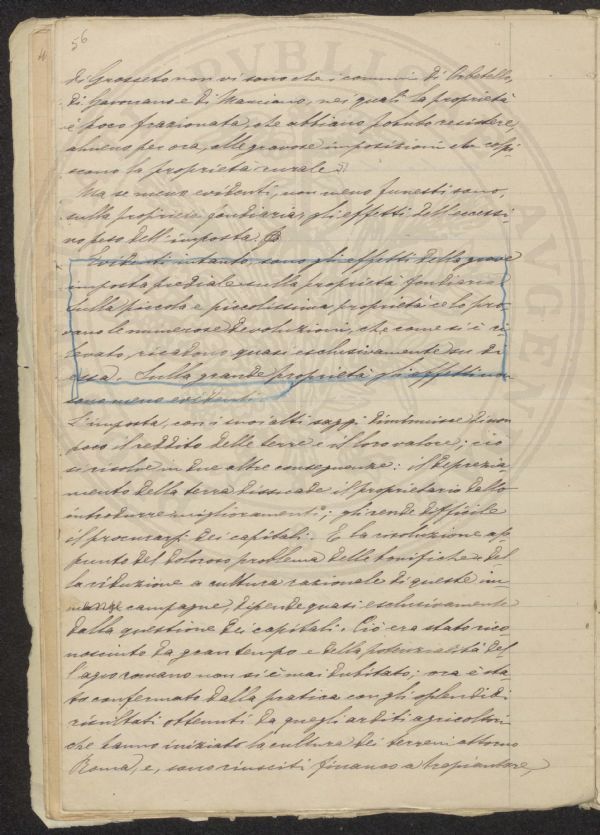 56
di Grosseto non vi sono che i comuni di Orbetello,
di Gavorrano e di Manciano, nei quali la proprietà
è poco frazionata, che abbiano potuto resistere,
almeno per ora, alle gravose imposizioni che colpi-
scono la proprietà rurale.
Ma se meno evidenti, non meno funesti sono,
sulla proprietà fondiaria, gli effetti dell'eccessi-
vo peso dell'imposta.
Evidenti intanto sono gli effetti della grave
imposta prediale sulla proprietà fondiaria
Sulla piccola e piccolissima proprietà ce lo pro-
vano le numerose devoluzioni, che come si è ri-
levato, ricadono quasi esclusivamente su di
essa. Sulla grande proprietà gli effetti
sono meno evidenti.
L'imposta, con i suoi alti saggi diminuisce di non
poco il reddito delle terre e il loro valore; ciò
si risolve in due altre conseguenze: il deprezza-
mento della terra dissuade il proprietario dallo
introdurre miglioramenti; gli rende difficile
il procurarsi dei capitali. E la risoluzione ap-
punto del doloroso problema delle bonifiche e del
la riduzione a cultura razionale di queste im-
mense campagne, dipende quasi esclusivamente
dalla questione dei capitali. Ciò era stato rico-
nosciuto da gran tempo e della potenzialità del
l'agro romano non si è mai dubitato; ora è sta-
to confermato dalla pratica con gli splendidi
risultati ottenuti da quegli arditi agricoltori
che hanno iniziato la cultura dei terreni attorno
Roma, e, sono riusciti financo a trapiantare,